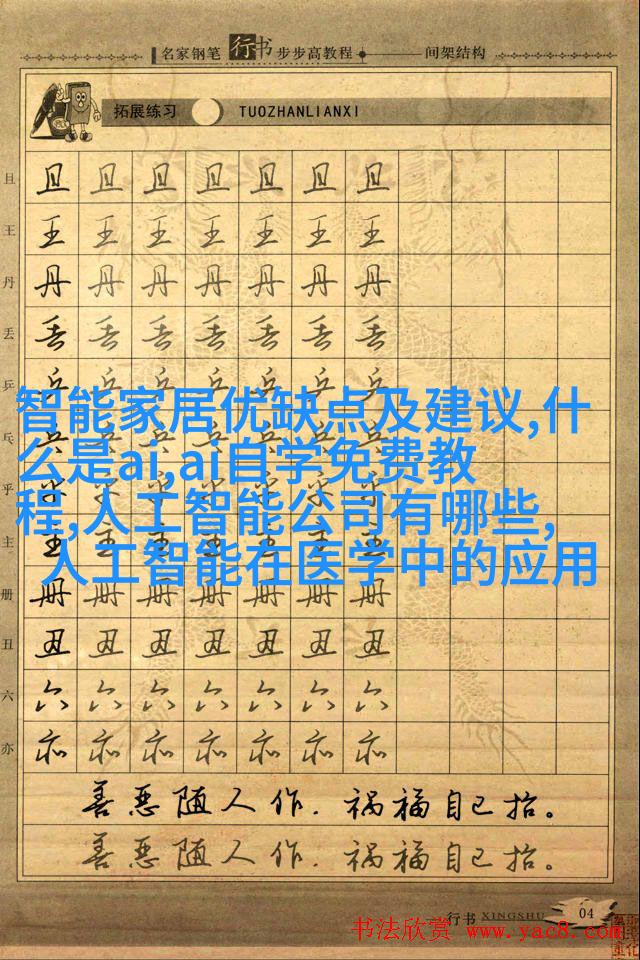 名家钢笔行书步步高教程 间架结构
拓展练习 TUOZHANLIANXI
且 且 且 且 且 且 且 且
王 王 王 王 王 王 王 王
丹 丹 丹 丹 丹 丹 丹 丹
丢 丢 丢 丢 丢 丢 丢 丢
乒 乒 乒 乒 乒 乒 乒 乒
智能家居优缺点及建议,什
乓 乓 乓 乓 乓 乓 乓 乓
么是ai,ai自学免费教
乎 乎 乎 乎 乎 乎 乎 乎
程,人工智能公司有哪些,
主 主 主 主 主 主 主 主
人工智能在医学中的应用
册 册 册 册 册 册 册 册
丑 丑 丑 丑 丑 丑 丑 丑
六 六 六 六 六 六 六 六
亦 亦 亦 亦 亦 亦 亦 亦
善恶随人作.祸福自己招。
善恶随人作.祸福自己招。
行书 XINGSHU 04
书法欣赏 www.yac8.com